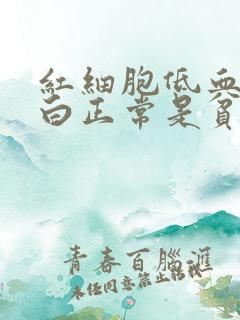 紅細胞低血
白正常是貧
青春百腦滙
未经同意禁止转载